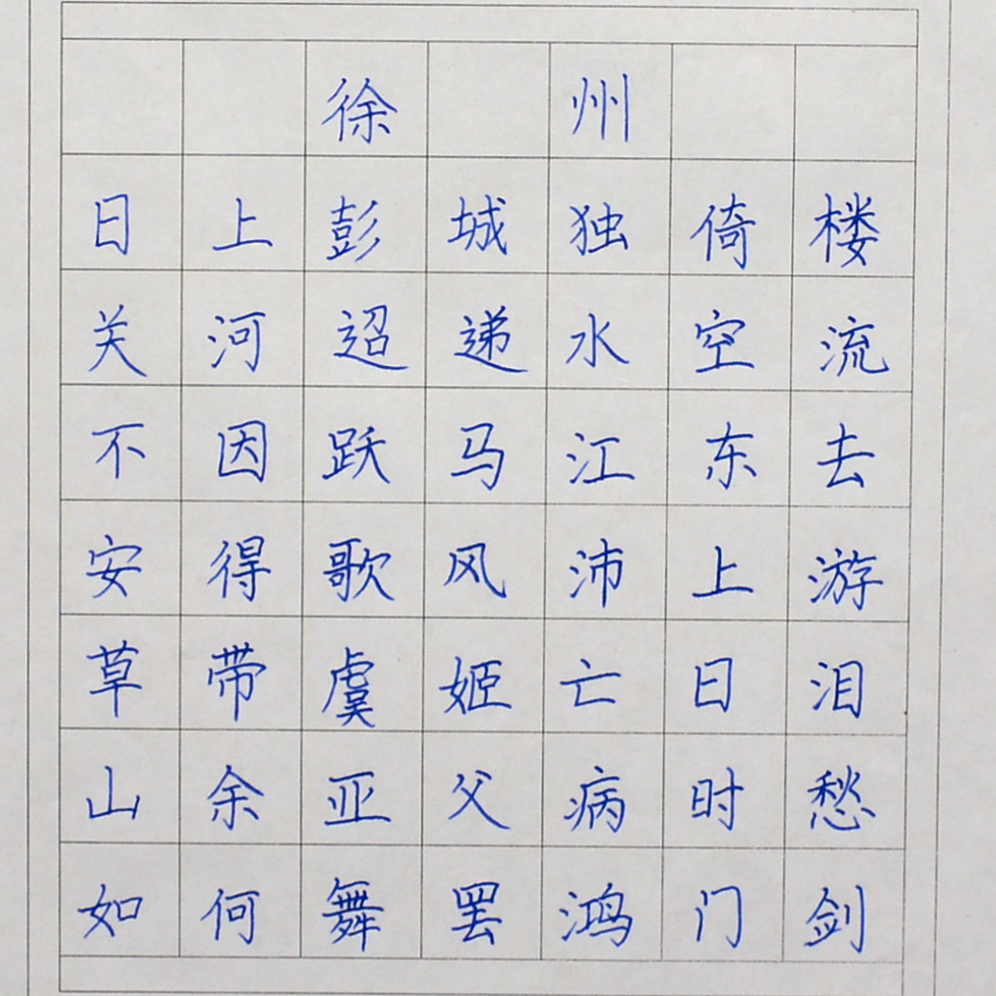 徐州
日上彭城独倚楼
关河迢递水空流
不因跃马江东去
安得歌风沛上游
草带虞姬亡日泪
山余亚父病时愁
如何舞罢鸿门剑